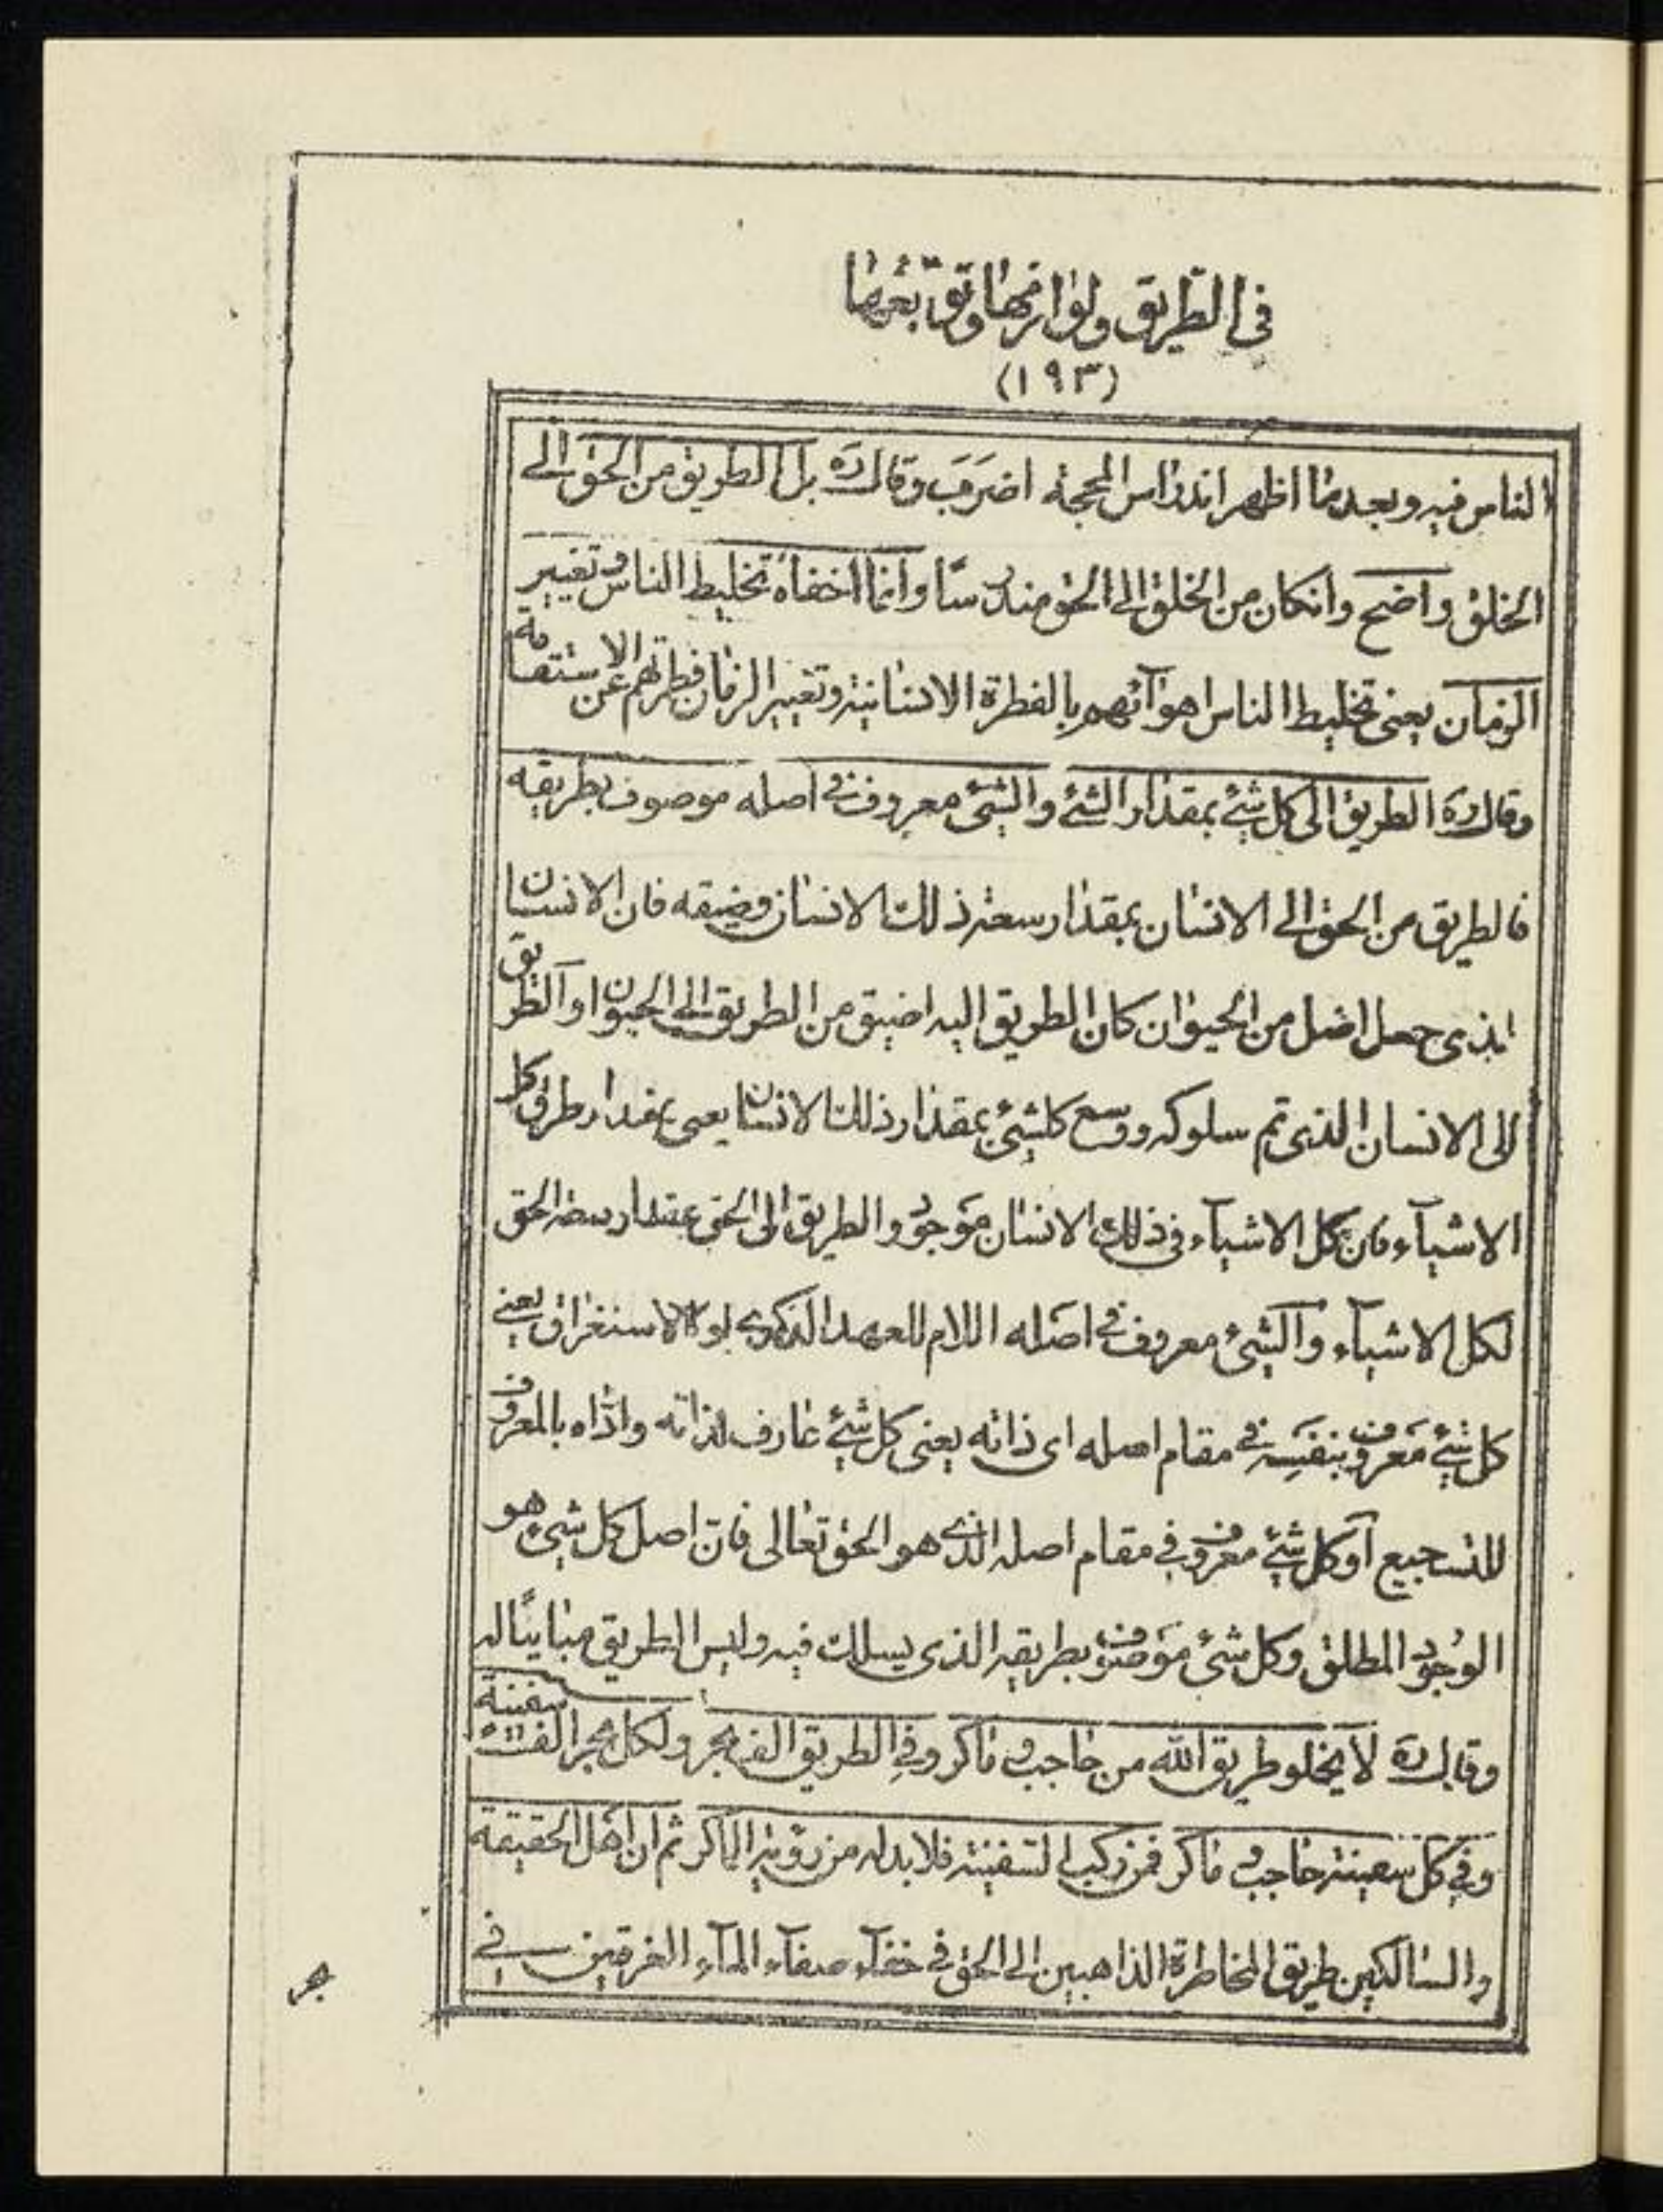 في الطريق ولوازمها وتوابعها
(١٩٣)
الناس فيه وبعد ما اظهر اندراس المحجة اضرب وقال ره بل الطريق من الحق الى
الخلق واضح وانكان من الخلق الى الحق مندرسا وانما اخفاه تخليط الناس وتغيير
الزمان يعنى تخليط الناس اهوآئهم بالفطرة الانسانية وتغيير الزمان فطرتهم عن الاستقامة
وقال ره الطريق الى كل شئ بمقدار الشئ والشئ معروف فى اصله موصوف بطريقه
فالطريق من الحق الى الانسان بمقدار سعة ذلك الانسان وضيقه فان الانسان
الذى جعل اضل من الحيوان كان الطريق اليه اضيق من الطريق الى الحيوان او الطريق
الى الانسان الذى تم سلوكه ووسع كلشئ بمقدار ذلك الانسان يعنى بمقدار طرق كل
الاشيآء فان كل الاشيآء فى ذلك الانسان موجود والطريق الى الحق بمقدار سعة الحق
لكل الاشيآء والشئ معروف فى اصله اللام للعهد الذكرى او للاستغراق يعنى
كل شئ معروف بنفسه فى مقام اصله اى ذاته يعنى كل شئ عارف لذاته واداه بالمعروف
للتسجيع او كل شئ معروف فى مقام اصله الذى هو الحق تعالى فان اصل كل شئ هو
الوجود المطلق وكل شئ موصوف بطريقه الذى يسلك فيه وليس الطريق مباينا له
وقال ره لا يخلو طريق الله من حاجب و ماكر وفى الطريق الف بحر ولكل بحر الف سفينة
وفى كل سفينة حاجب و ماكر فمن ركب السفينة فلا بد له من رؤية الماكر ثم ان اهل الحقيقة
والسالكين طريق المخاطرة الذاهبين الى الحق فى خفآء صفآء المآء الغرقين فى